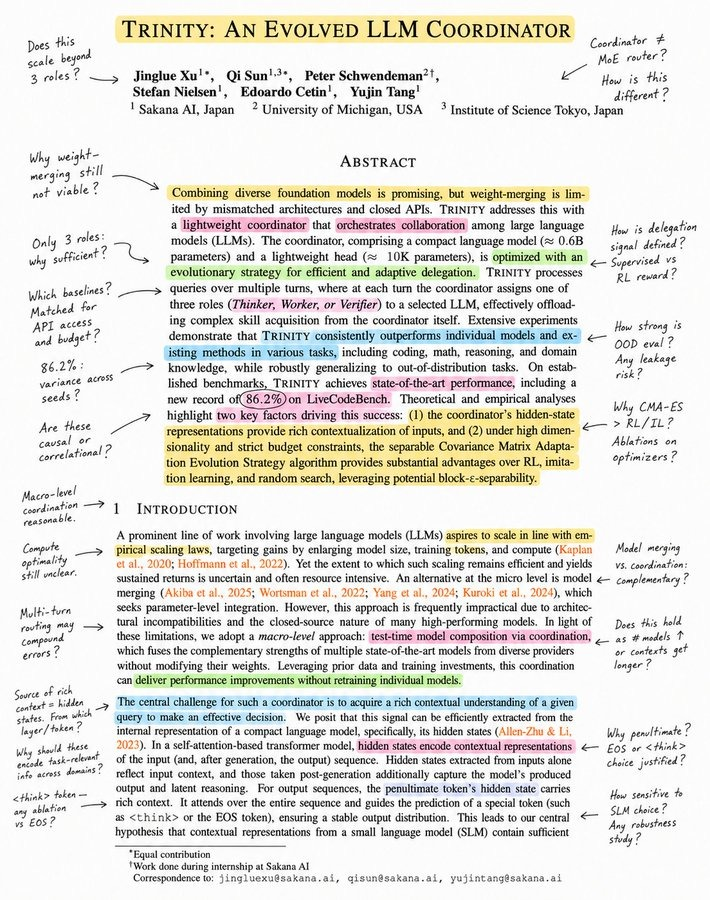 TRINITY: AN EVOLVED LLM COORDINATOR
Does this
scale beyond
3 roles?
Coordinator ≠
MoE router?
How is this
different?
Jinglue Xu¹*, Qi Sun¹,³*, Peter Schwendeman²†,
Stefan Nielsen¹, Edoardo Cetin¹, Yujin Tang¹
¹ Sakana AI, Japan ² University of Michigan, USA ³ Institute of Science Tokyo, Japan
ABSTRACT
Why weight-
merging still
not viable?
Only 3 roles:
why sufficient?
Which baselines?
Matched for
API access
and budget?
86.2%:
variance across
seeds?
Are these
causal or
correlational?
Combining diverse foundation models is promising, but weight-merging is lim-
ited by mismatched architectures and closed APIs. TRINITY addresses this with
a lightweight coordinator that orchestrates collaboration among large language
models (LLMs). The coordinator, comprising a compact language model (≈ 0.6B
parameters) and a lightweight head (≈ 10K parameters), is optimized with an
evolutionary strategy for efficient and adaptive delegation. TRINITY processes
queries over multiple turns, where at each turn the coordinator assigns one of
three roles (Thinker, Worker, or Verifier) to a selected LLM, effectively offload-
ing complex skill acquisition from the coordinator itself. Extensive experiments
demonstrate that TRINITY consistently outperforms individual models and ex-
isting methods in various tasks, including coding, math, reasoning, and domain
knowledge, while robustly generalizing to out-of-distribution tasks. On estab-
lished benchmarks, TRINITY achieves state-of-the-art performance, including a
new record of 86.2% on LiveCodeBench. Theoretical and empirical analyses
highlight two key factors driving this success: (1) the coordinator's hidden-state
representations provide rich contextualization of inputs, and (2) under high dimen-
sionality and strict budget constraints, the separable Covariance Matrix Adapta-
tion Evolution Strategy algorithm provides substantial advantages over RL, imita-
tion learning, and random search, leveraging potential block-ε-separability.
How is delegation
signal defined?
Supervised vs
RL reward?
How strong is
OOD eval?
Any leakage
risk?
Why CMA-ES
> RL/IL?
Ablations on
optimizers?
1 INTRODUCTION
Macro-level
coordination
reasonable.
Compute
optimality
still unclear.
Multi-turn
routing may
compound
errors?
A prominent line of work involving large language models (LLMs) aspires to scale in line with em-
pirical scaling laws, targeting gains by enlarging model size, training tokens, and compute (Kaplan
et al., 2020; Hoffmann et al., 2022). Yet the extent to which such scaling remains efficient and yields
sustained returns is uncertain and often resource intensive. An alternative at the micro level is model
merging (Akiba et al., 2025; Wortsman et al., 2022; Yang et al., 2024; Kuroki et al., 2024), which
seeks parameter-level integration. However, this approach is frequently impractical due to architec-
tural incompatibilities and the closed-source nature of many high-performing models. In light of
these limitations, we adopt a macro-level approach: test-time model composition via coordination,
which fuses the complementary strengths of multiple state-of-the-art models from diverse providers
without modifying their weights. Leveraging prior data and training investments, this coordination
can deliver performance improvements without retraining individual models.
Model merging
vs. coordination:
complementary?
Does this hold
as # models ↑
or contexts get
longer?
Source of rich
context = hidden
states. From which
layer/token?
Why should these
encode task-relevant
info across domains?
<think> token—
any ablation
vs EOS?
The central challenge for such a coordinator is to acquire a rich contextual understanding of a given
query to make an effective decision. We posit that this signal can be efficiently extracted from the
internal representation of a compact language model, specifically, its hidden states (Allen-Zhu & Li,
2023). In a self-attention-based transformer model, hidden states encode contextual representations
of the input (and, after generation, the output) sequence. Hidden states extracted from inputs alone
reflect input context, and those taken post-generation additionally capture the model's produced
output and latent reasoning. For output sequences, the penultimate token's hidden state carries
rich context. It attends over the entire sequence and guides the prediction of a special token (such
as <think> or the EOS token), ensuring a stable output distribution. This leads to our central
hypothesis that contextual representations from a small language model (SLM) contain sufficient
Why penultimate?
EOS or <think>
choice justified?
How sensitive to
SLM choice?
Any robustness
study?
*Equal contribution
†Work done during internship at Sakana AI
Correspondence to: jingluexu@sakana.ai, qisun@sakana.ai, yujintang@sakana.ai